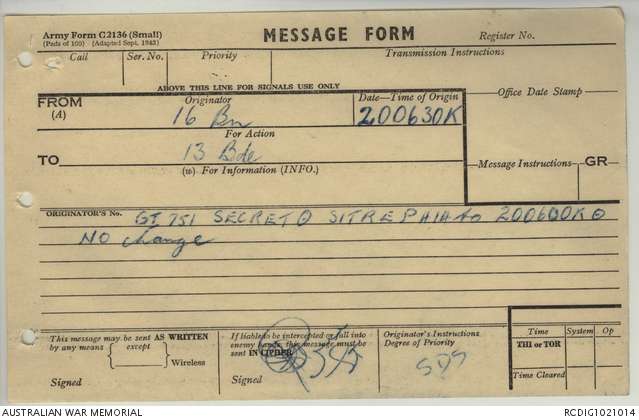 Army Form C2136 (Small)
(Pads of 100) (Adapted Sept. 1942)
MESSAGE FORM
Register No.
Call
Ser. No.
Priority
Transmission Instructions
ABOVE THIS LINE FOR SIGNALS USE ONLY
FROM
(A)
Originator
16 Bn
Date—Time of Origin
200630K
Office Date Stamp
For Action
TO
13 Bde
(w) For Information (INFO.)
Message Instructions
GR
ORIGINATOR'S No.
GT 751 SECRET SITREP to 200600K
No change
This message may be sent AS WRITTEN
by any means except
Wireless
Signed
If liable to be intercepted or fall into
enemy hands, this message must be
sent IN CIPHER
Signed
Originator's Instructions
Degree of Priority
Time
System
Op
THI or TOR
Time Cleared
AUSTRALIAN WAR MEMORIAL
RCDIG1021014